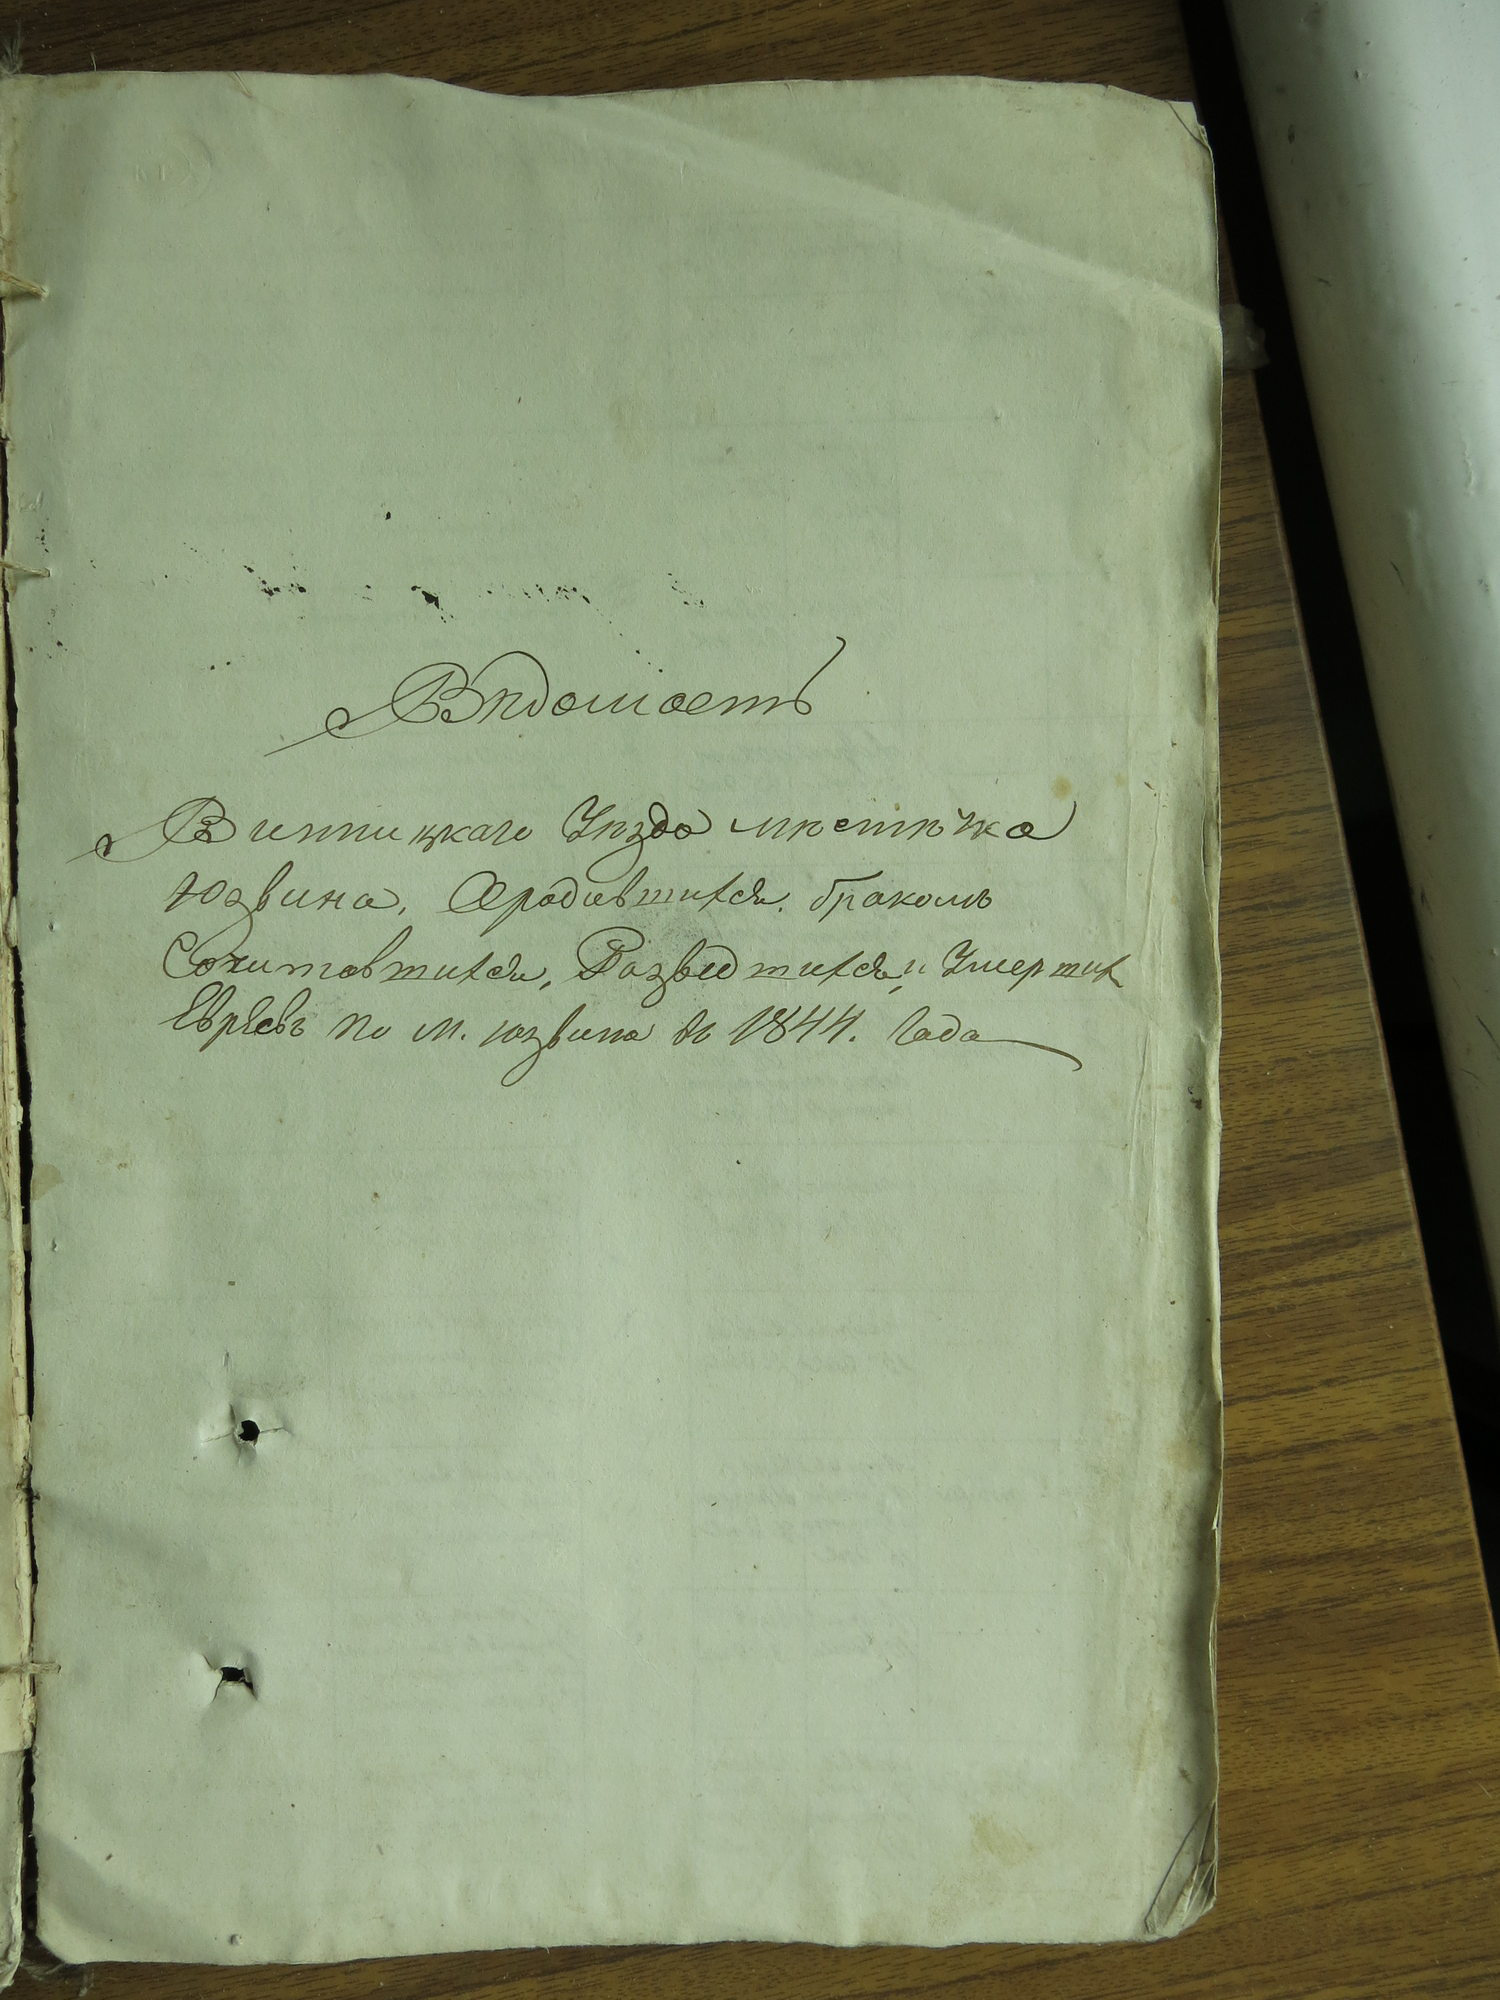 Вѣдомость
Винницкаго Уѣзда мѣстѣчка
Юзвина, О родившихся, бракомъ
Сочитавшихся, Разведшихся, и Умершихъ
Евреевъ по м. Юзвина за 1844. Года